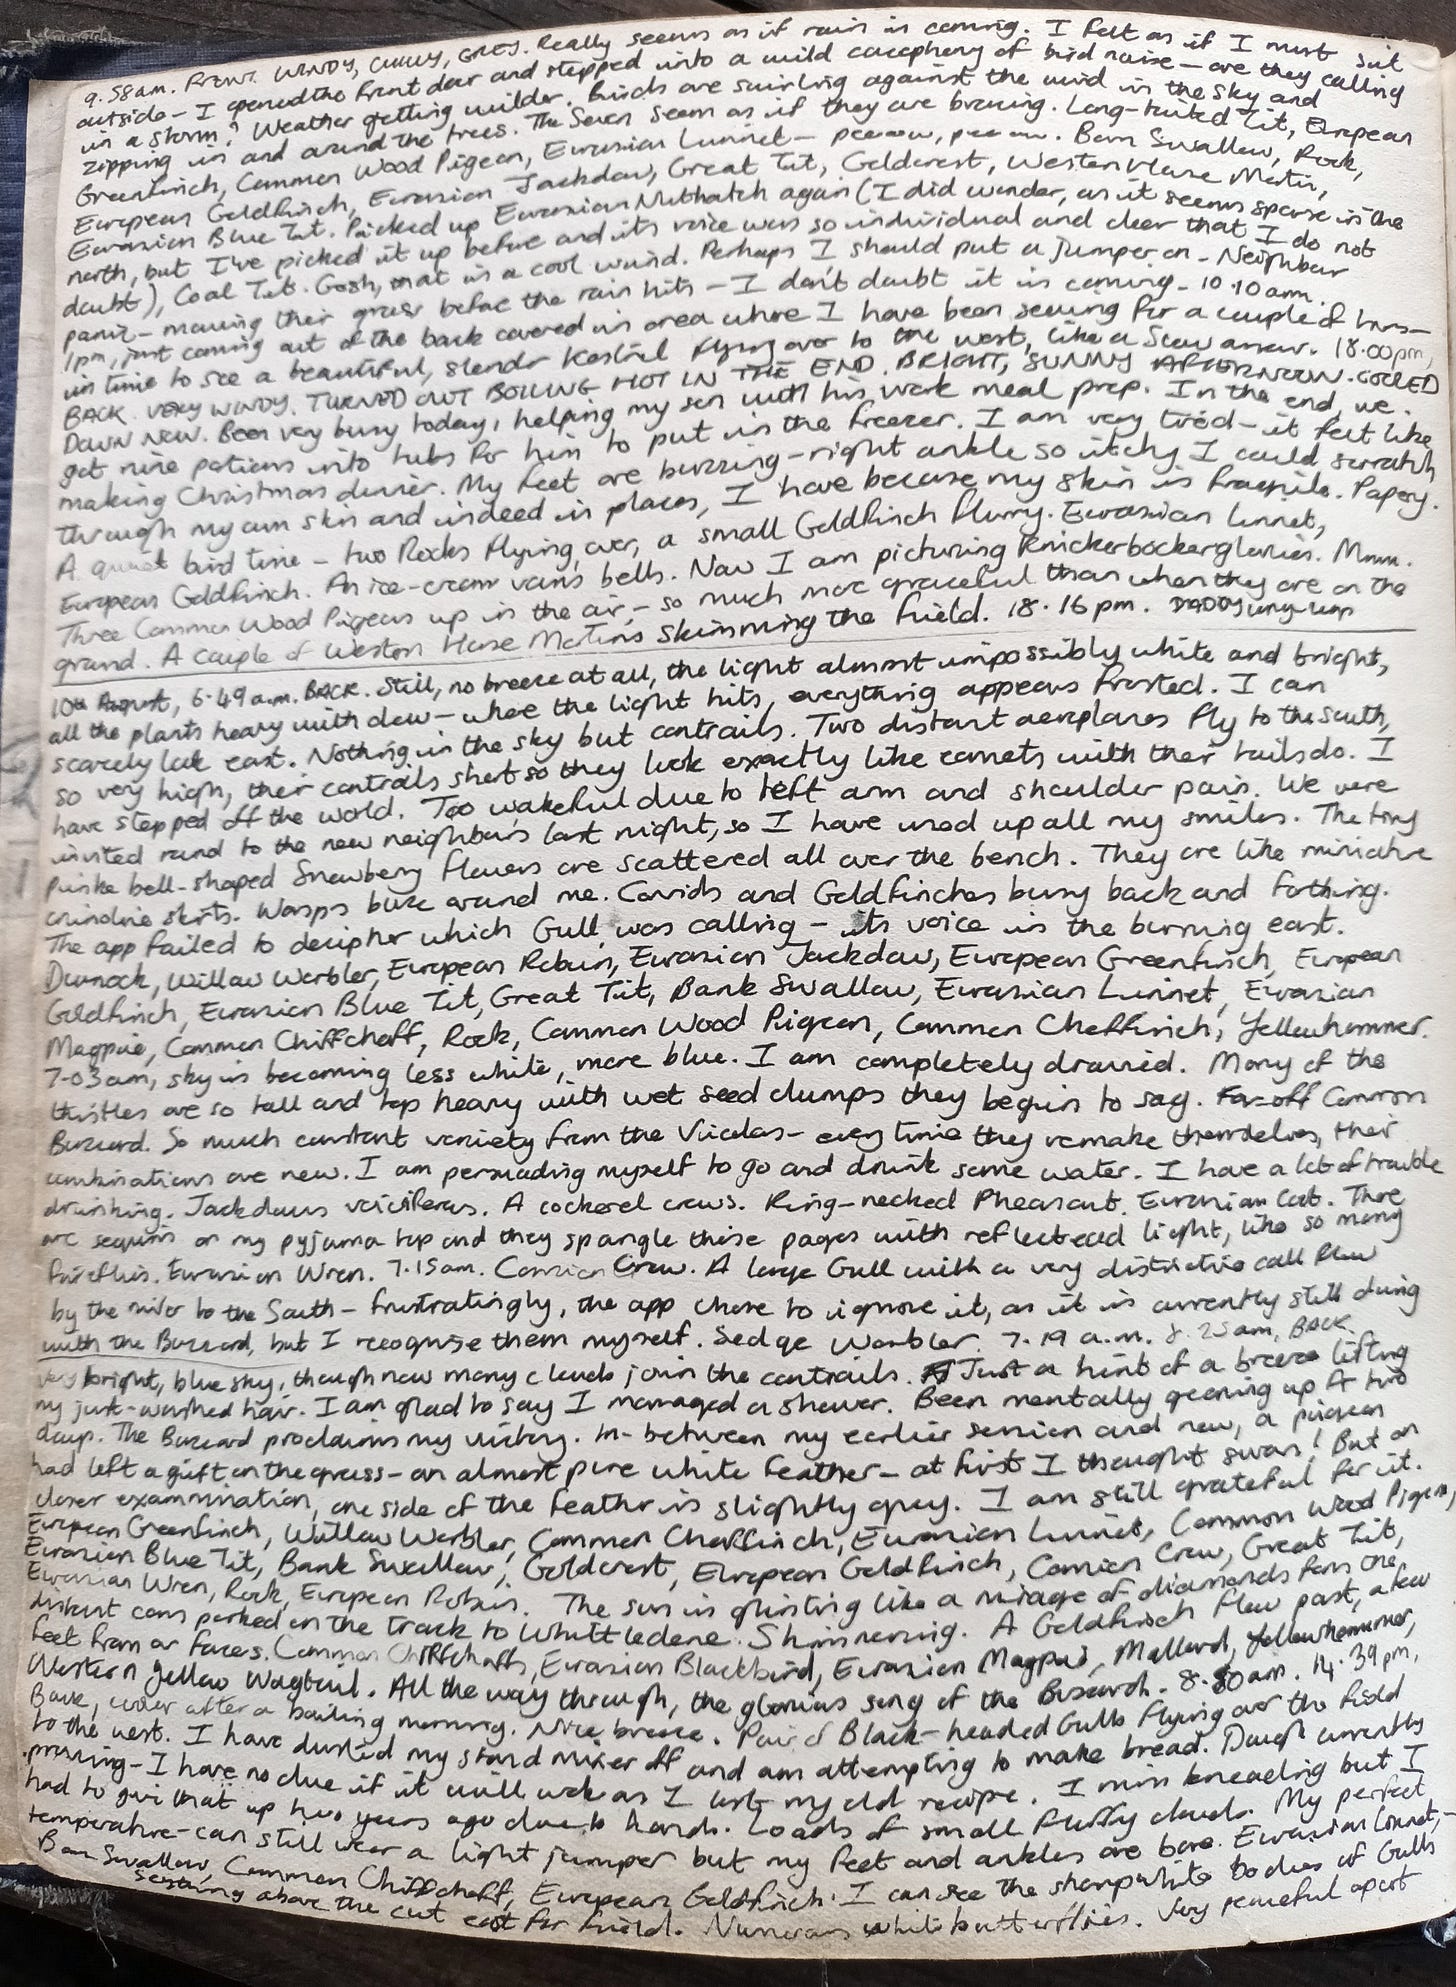 9.58am. FRONT. WINDY, CHILLY, GREY. Really seems as if rain is coming. I felt as if I must sit
outside - I opened the front door and stepped into a wild cacophony of bird noise - are they calling
in a storm? Weather getting wilder. Birds are swirling against the wind in the sky and
zipping in and around the trees. The Seven seem as if they are bracing. Long-tailed Tit, European
Greenfinch, Common Wood Pigeon, Eurasian Linnet - peeeow, peeeow. Barn Swallow, Rook,
European Goldfinch, Eurasian Jackdaw, Great Tit, Goldcrest, Western House Martin,
Eurasian Blue Tit. Picked up Eurasian Nuthatch again (I did wonder, as it seems sparse in the
north, but I've picked it up before and its voice was so individual and clear that I do not
doubt), Coal Tit. Gosh, that is a cool wind. Perhaps I should put a jumper on - Neighbour
panic - mowing their grass before the rain hits - I don't doubt it is coming - 10.10am.
1pm, just coming out of the back covered in area where I have been sewing for a couple of hours -
in time to see a beautiful, slender Kestrel flying over to the west, like a slow arrow. 18.00pm,
BACK. VERY WINDY. TURNED OUT BOILING HOT IN THE END. BRIGHT, SUNNY AFTERNOON. COOLED
DOWN NOW. Been very busy today, helping my son with his work meal prep. In the end, we
got nine portions into tubs for him to put in the freezer. I am very tired - it felt like
making Christmas dinner. My feet are buzzing - right ankle so itchy I could scratch
through my own skin and indeed in places, I have because my skin is fragile. Papery.
A quiet bird time - two Rooks flying over, a small Goldfinch flurry. Eurasian Linnet,
European Goldfinch. An ice-cream van's bells. Now I am picturing Knickerbockerglories. Mmm.
Three Common Wood Pigeons up in the air - so much more graceful than when they are on the
ground. A couple of Western House Martins skimming the field. 18.16pm. DADDY long-legs
10th August, 6.49a.m. BACK. Still, no breeze at all, the light almost impossibly white and bright,
all the plants heavy with dew - where the light hits, everything appears frosted. I can
scarcely look east. Nothing in the sky but contrails. Two distant aeroplanes fly to the south,
so very high, their contrails short so they look exactly like comets with their tails do. I
have stepped off the world. Too wakeful due to left arm and shoulder pain. We were
invited round to the new neighbours last night, so I have used up all my smiles. The tiny
pinke bell-shaped Snowberry flowers are scattered all over the bench. They are like miniature
crinoline skirts. Wasps buzz around me. Corvids and Goldfinches busy back and forthing.
The app failed to decipher which Gull was calling - its voice in the burning east.
Dunnock, Willow Warbler, European Robin, Eurasian Jackdaw, European Greenfinch, European
Goldfinch, Eurasian Blue Tit, Great Tit, Bank Swallow, Eurasian Linnet, Eurasian
Magpie, Common Chiffchaff, Rook, Common Wood Pigeon, Common Chaffinch, Yellowhammer.
7.03am, sky is becoming less white, more blue. I am completely drained. Many of the
thistles are so tall and top heavy with wet seed clumps they begin to sag. Far-off Common
Buzzard. So much constant variety from the Viscolas - every time they remake themselves, their
combinations are new. I am persuading myself to go and drink some water. I have a lot of trouble
drinking. Jackdaws vociferous. A cockerel crows. Ring-necked Pheasant. Eurasian Coot. There
are sequins on my pyjama top and they spangle these pages with reflecteed light, like so many
fireflies. Eurasian Wren. 7.15am. Carrion Crow. A large Gull with a very distinctive call flew
by the river to the South - frustratingly, the app chose to ignore it, as it is currently still doing
with the Buzzard, but I recognise them myself. Sedge Warbler. 7.19a.m. 8.25am, BACK
very bright, blue sky, though now many clouds join the contrails. Just a hint of a breeze lifting
my just-washed hair. I am glad to say I managed a shower. Been mentally gearing up for two
days. The Buzzard proclaims my victory. In-between my earlier session and now, a pigeon
had left a gift on the grass - an almost pure white feather - at first I thought swan! But on
closer examination, one side of the feather is slightly grey. I am still grateful for it.
European Greenfinch, Willow Warbler, Common Chaffinch, Eurasian Linnet, Common Wood Pigeon,
Eurasian Blue Tit, Bank Swallow, Goldcrest, European Goldfinch, Carrion Crow, Great Tit,
Eurasian Wren, Rook, European Robin. The sun is glinting like a mirage of diamonds from the
distant cars parked on the track to Whittledene. Shimmering. A Goldfinch flew past, a few
feet from our faces. Common Chiffchaffs, Eurasian Blackbird, Eurasian Magpie, Mallard, Yellowhammer,
Western Yellow Wagtail. All the way through, the glorious song of the Buzzard. 8.50am. 14.39pm,
Back, cooler after a boiling morning. Nice breeze. Pair of Black-headed Gulls flying over the field
to the west. I have dusted my stand mixer off and am attempting to make bread. Dough currently
proving - I have no clue if it will work as I lost my old recipe. I miss kneading but I
had to give that up two years ago due to hands. Loads of small fluffy clouds. My perfect
temperature - can still wear a light jumper but my feet and ankles are bare. Eurasian Linnet,
Barn Swallow, Common Chiffchaff, European Goldfinch. I can see the sharp white bodies of Gulls
above the cut east far field. Numerous white butterflies. Very peaceful apart